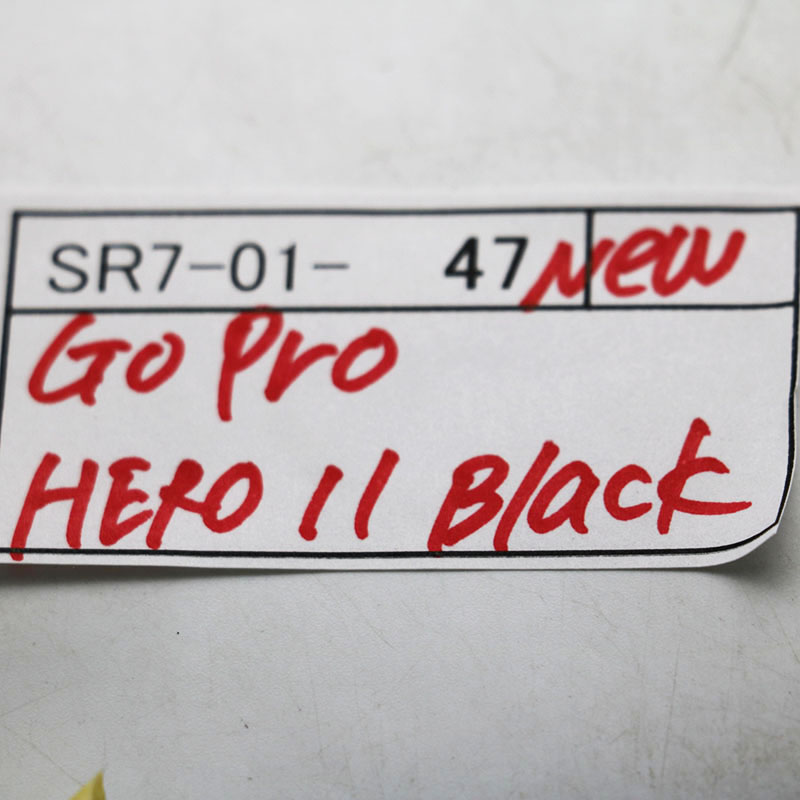 SR7-01- 47 New
Go Pro
HERO 11 Black